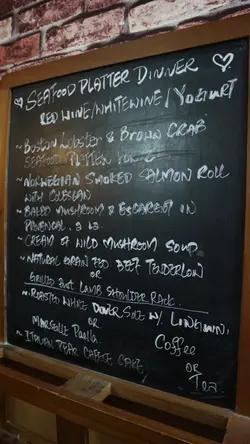 SEAFOOD PLATTER DINNER
RED WINE/WHITEWINE/YOGURT
~ BOSTON LOBSTER & BROWN CRAB
SEAFOOD PLATTER FOR 2
~ NORWEGIAN SMOKED SALMON ROLL
WITH COLESLAW
~ BAKED MUSHROOM & ESCARGOT IN
PROVENCAL.
~ CREAM OF WILD MUSHROOM SOUP.
~ NATURAL GRAIN FED BEEF TENDERLOIN
OR
GRILLED LAMB SHOULDER RACK.
~ ROASTED WHITE DOVER SOLE W/
OR
Coffee
~ ITALIAN PEAR CAKE
OR
Tea.